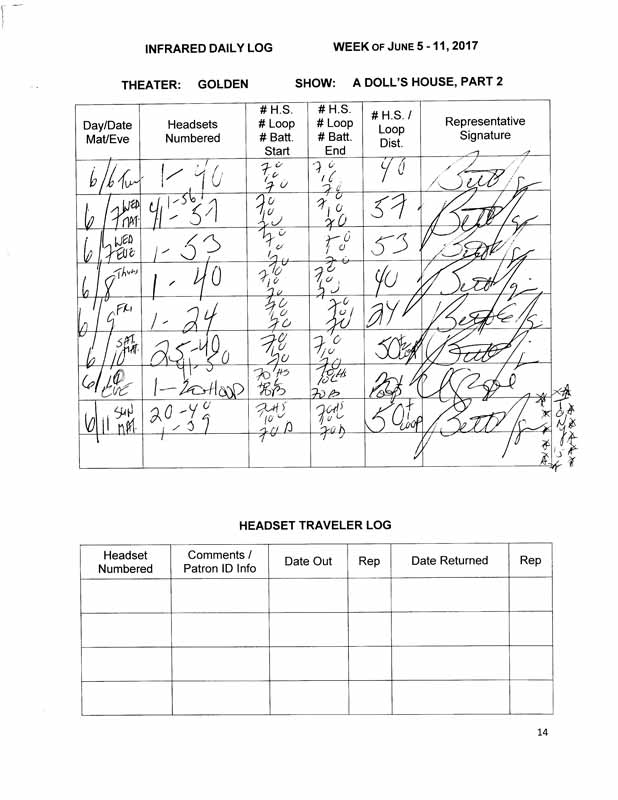 INFRARED DAILY LOG WEEK OF JUNE 5 - 11, 2017
THEATER: GOLDEN SHOW: A DOLL'S HOUSE, PART 2
Day/Date Mat/Eve Headsets Numbered # H.S. # Loop # Batt. Start # H.S. # Loop # Batt. End # H.S. / Loop Dist. Representative Signature
6/6 Tue 1-40 70 10 70 70 10 70 40
6/7 WED MAT 1-56 41-57 70 10 70 70 10 70 57
6/7 WED EVE 1-53 70 10 70 70 10 70 53
6/8 Thurs 1-40 70 10 70 70 10 70 40
6/9 FRI 1-24 70 10 70 70 10 70 24
6/10 SAT MAT 25-40 41-50 70 10 70 70 10 70 50
6/10 EVE 1-20+loop 70 HS 70B 70 HS 70B
6/11 SUN MAT 20-40 1-39 70HS 10L 70B 70HS 10L 70B 50+ loop
HEADSET TRAVELER LOG
Headset Numbered Comments / Patron ID Info Date Out Rep Date Returned Rep
14